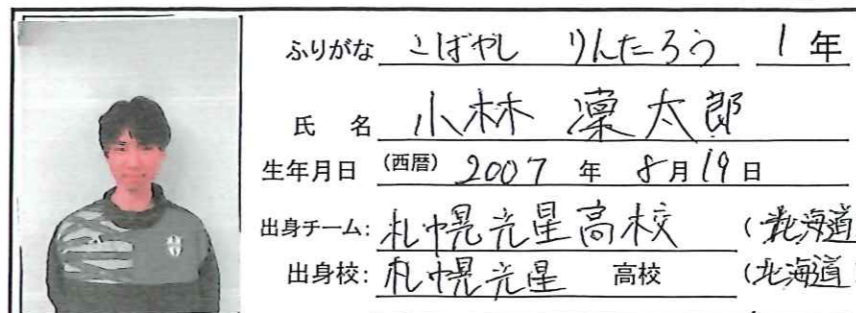 ふりがな こばやし りんたろう 1年
氏 名 小林 凜太郎
生年月日 (西暦) 2007 年 8月19日
出身チーム: 札幌光星高校 (北海道
出身校: 札幌光星 高校 (北海道